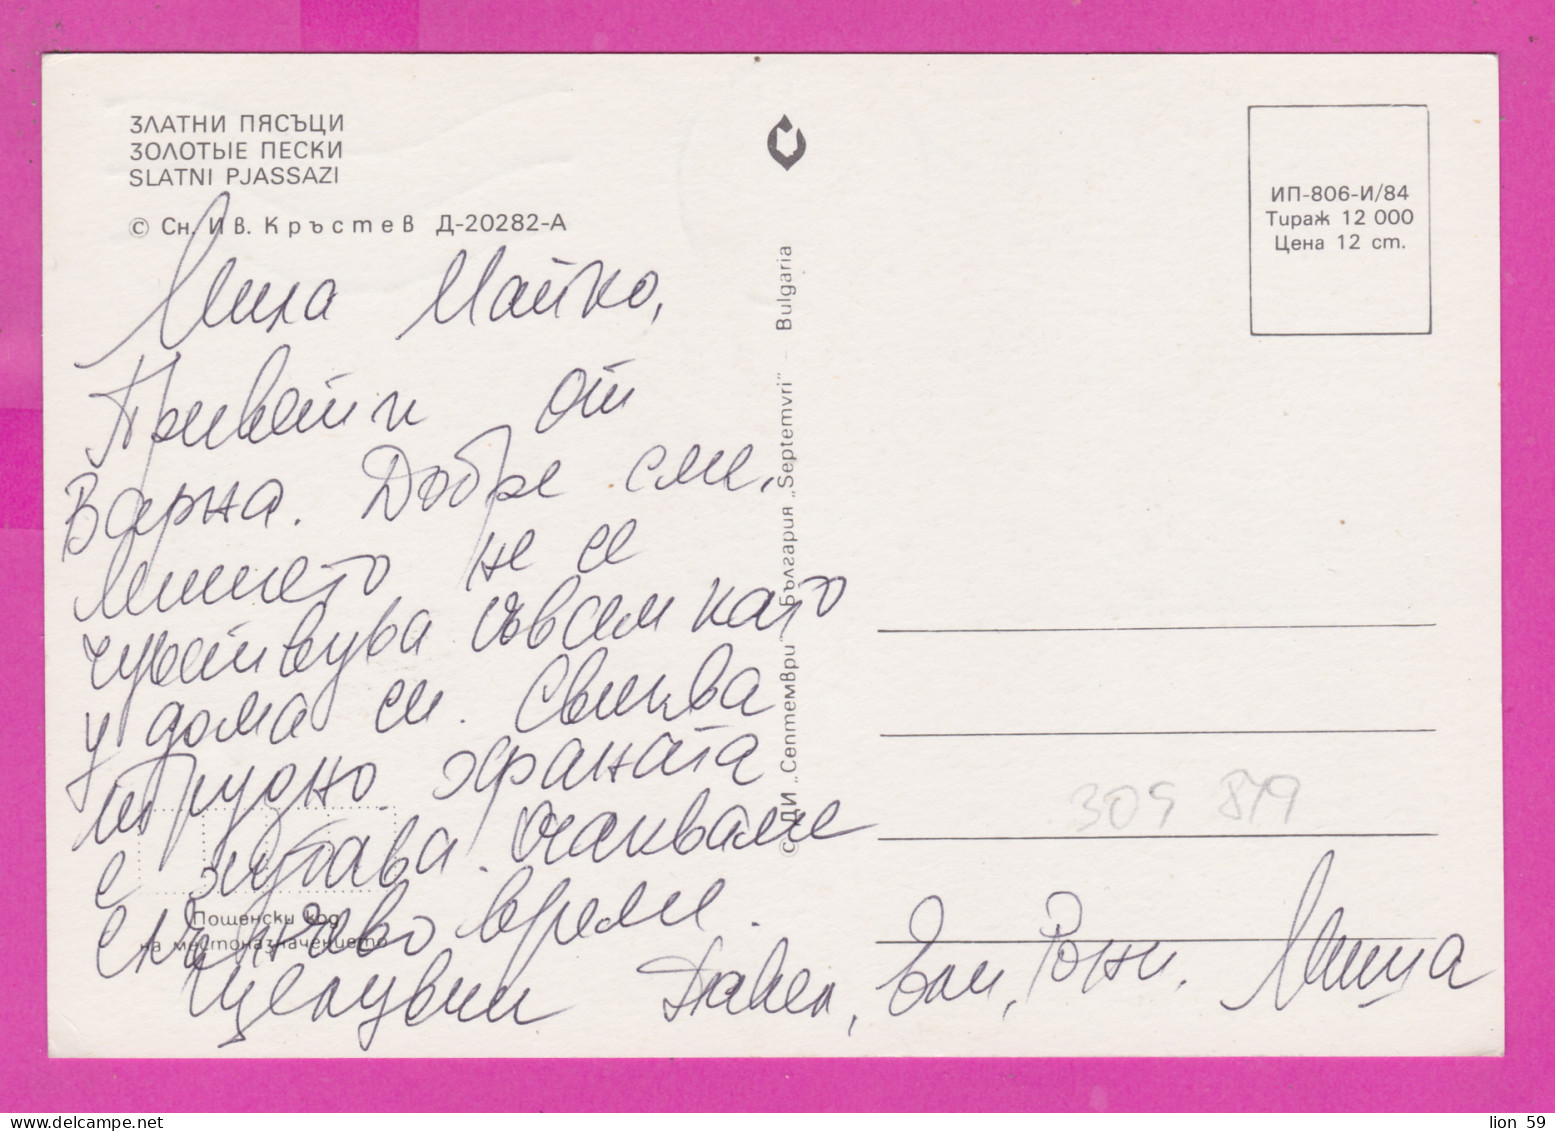 ЗЛАТНИ ПЯСЪЦИ
ЗОЛОТЫЕ ПЕСКИ
SLATNI PJASSAZI
© Сн. Ив. Кръстев Д-20282-А
ИП-806-И/84
Тираж 12 000
Цена 12 ст.
© ДИ „Септември“ България „Septemvri“ - Bulgaria
Мила Майко,
Привети от
Варна. Добре сме,
не се
чувствува съвсем като
у дома си. Свиква
трудно. храната
е хубава. Очакваме
слънчево време.
Целувки Павел, Ели, Рони, Миша
Пощенски код
на местоназначението
309 879
lion 59